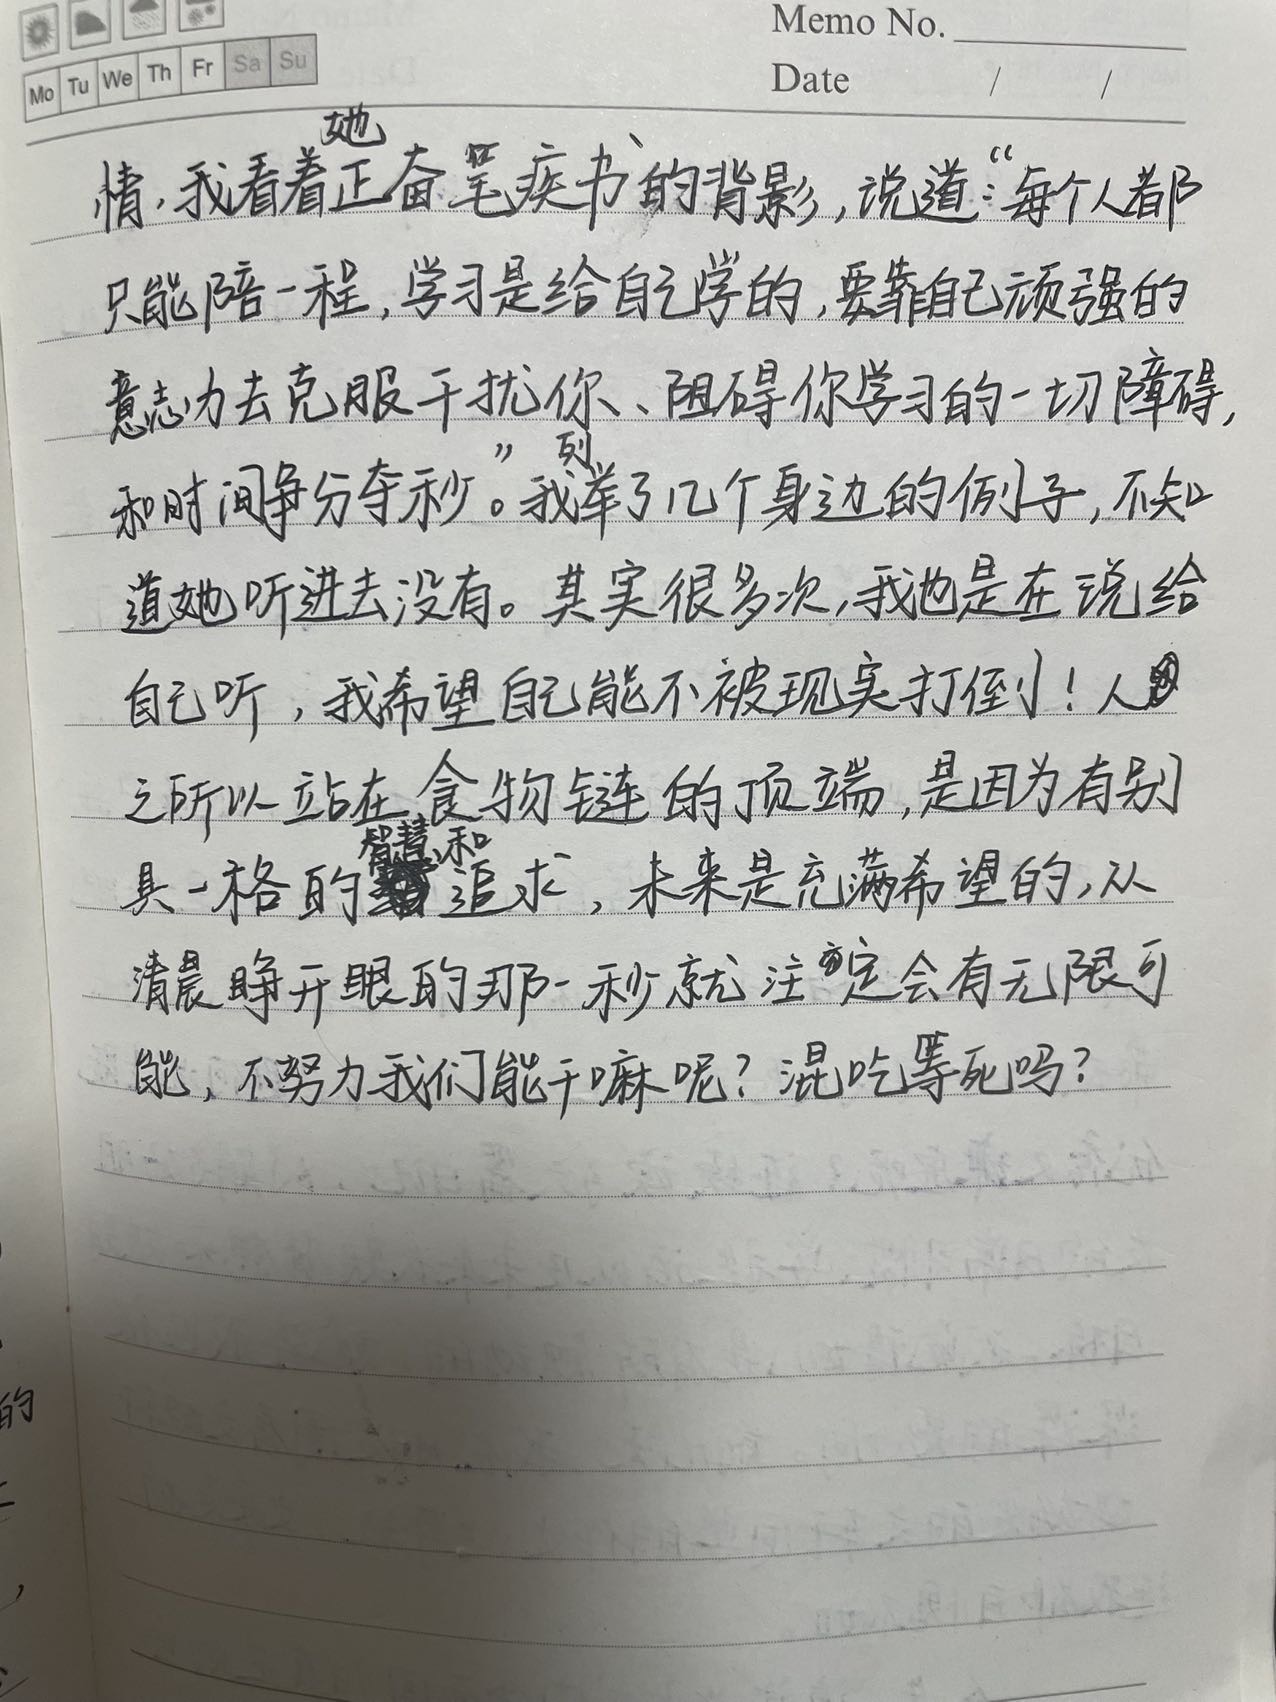 Memo No.
Mo Tu We Th Fr Sa Su
Date / /
情，我看着她正奋笔疾书的背影，说道：“每个人都
只能陪一程，学习是给自己学的，要靠自己顽强的
意志力去克服干扰你、阻碍你学习的一切障碍，
和时间争分夺秒”。我列举了几个身边的例子，不知
道她听进去没有。其实很多次，我也是在说给
自己听，我希望自己能不被现实打倒！人
之所以站在食物链的顶端，是因为有别
具一格的智慧和追求，未来是充满希望的，从
清晨睁开眼的那一秒就注定会有无限可
能，不努力我们能干嘛呢？混吃等死吗？
的